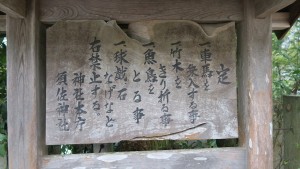 定
一車馬を
乗入する事
一竹木を
きり折る事
一魚鳥を
とる事
一球戯石
なげなど
右禁止する
神社本庁
須佐神社